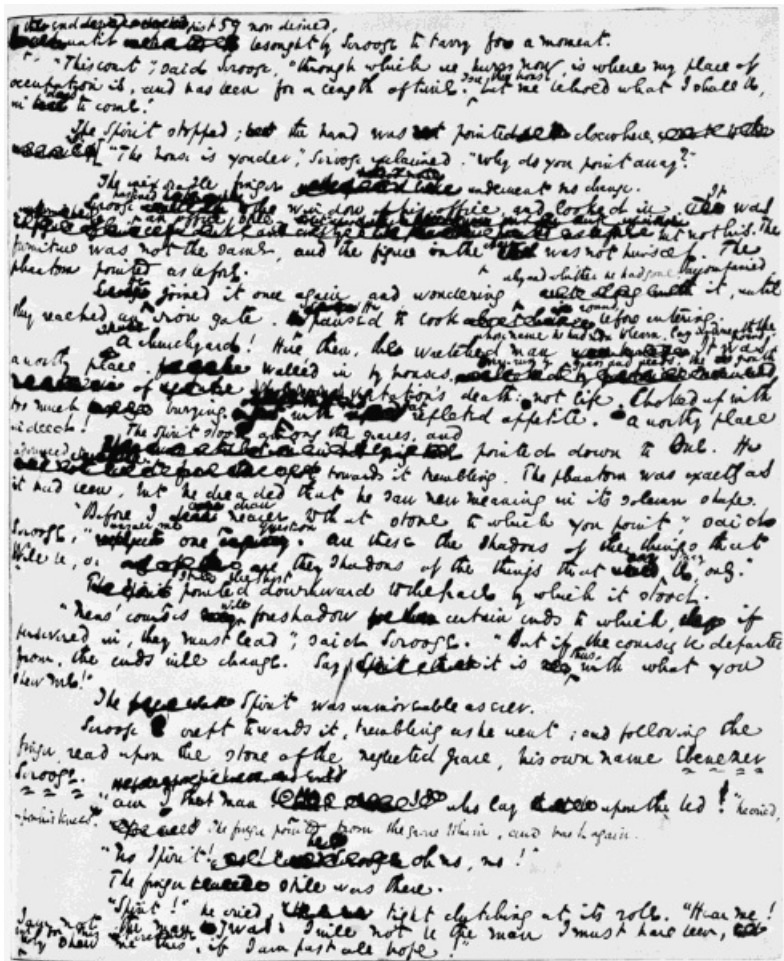 the end desired,
until besought by Scrooge to tarry for a moment.
"This court," said Scrooge, "through which we hurry now, is where my place of
occupation is, and has been for a length of time. I see the house. Let me behold what I shall be,
in days to come."
The Spirit stopped; the hand was pointed elsewhere.
"The house is yonder," Scrooge exclaimed. "Why do you point away?"
The inexorable finger underwent no change.
Scrooge hastened to the window of his office, and looked in. It was
an office still, but not his. The
furniture was not the same, and the figure in the chair was not himself. The
phantom pointed as before.
He joined it once again, and wondering why and whither he had gone, accompanied it, until
they reached an iron gate. He paused to look round before entering.
A churchyard! Here, then, the wretched man whose name he had now to learn, lay underneath the ground. It was
a worthy place. Walled in by houses, overrun by grass and weeds, the growth
of vegetation's death, not life. Choked up with
too much burying, fat with repleted appetite. A worthy place
indeed!
The Spirit stood among the graves, and pointed down to One. He
advanced towards it trembling. The phantom was exactly as
it had been, but he dreaded that he saw new meaning in its solemn shape.
"Before I draw nearer to that stone to which you point," said
Scrooge, "answer me one question. Are these the shadows of the things that
Will be, or are they shadows of the things that may be, only."
Still the Ghost pointed downward to the grave by which it stood.
"Mens' courses will foreshadow certain ends to which, if
persevered in, they must lead," said Scrooge. "But if the courses be departed
from, the ends will change. Say it is thus with what you
shew me!"
The Spirit was immoveable as ever.
Scrooge crept towards it, trembling as he went; and following the
finger, read upon the stone of the neglected grave, his own name Ebenezer
Scrooge.
"Am I that man who lay upon the bed!" he cried,
upon his knees.
The finger pointed from the grave to him, and back again.
"No Spirit! oh no, no!"
The finger still was there.
"Spirit!" he cried, tight clutching at its robe. "Hear me!
I am not the man I was. I will not be the man I must have been,
but for this intercourse.
Why shew me this, if I am past all hope!"